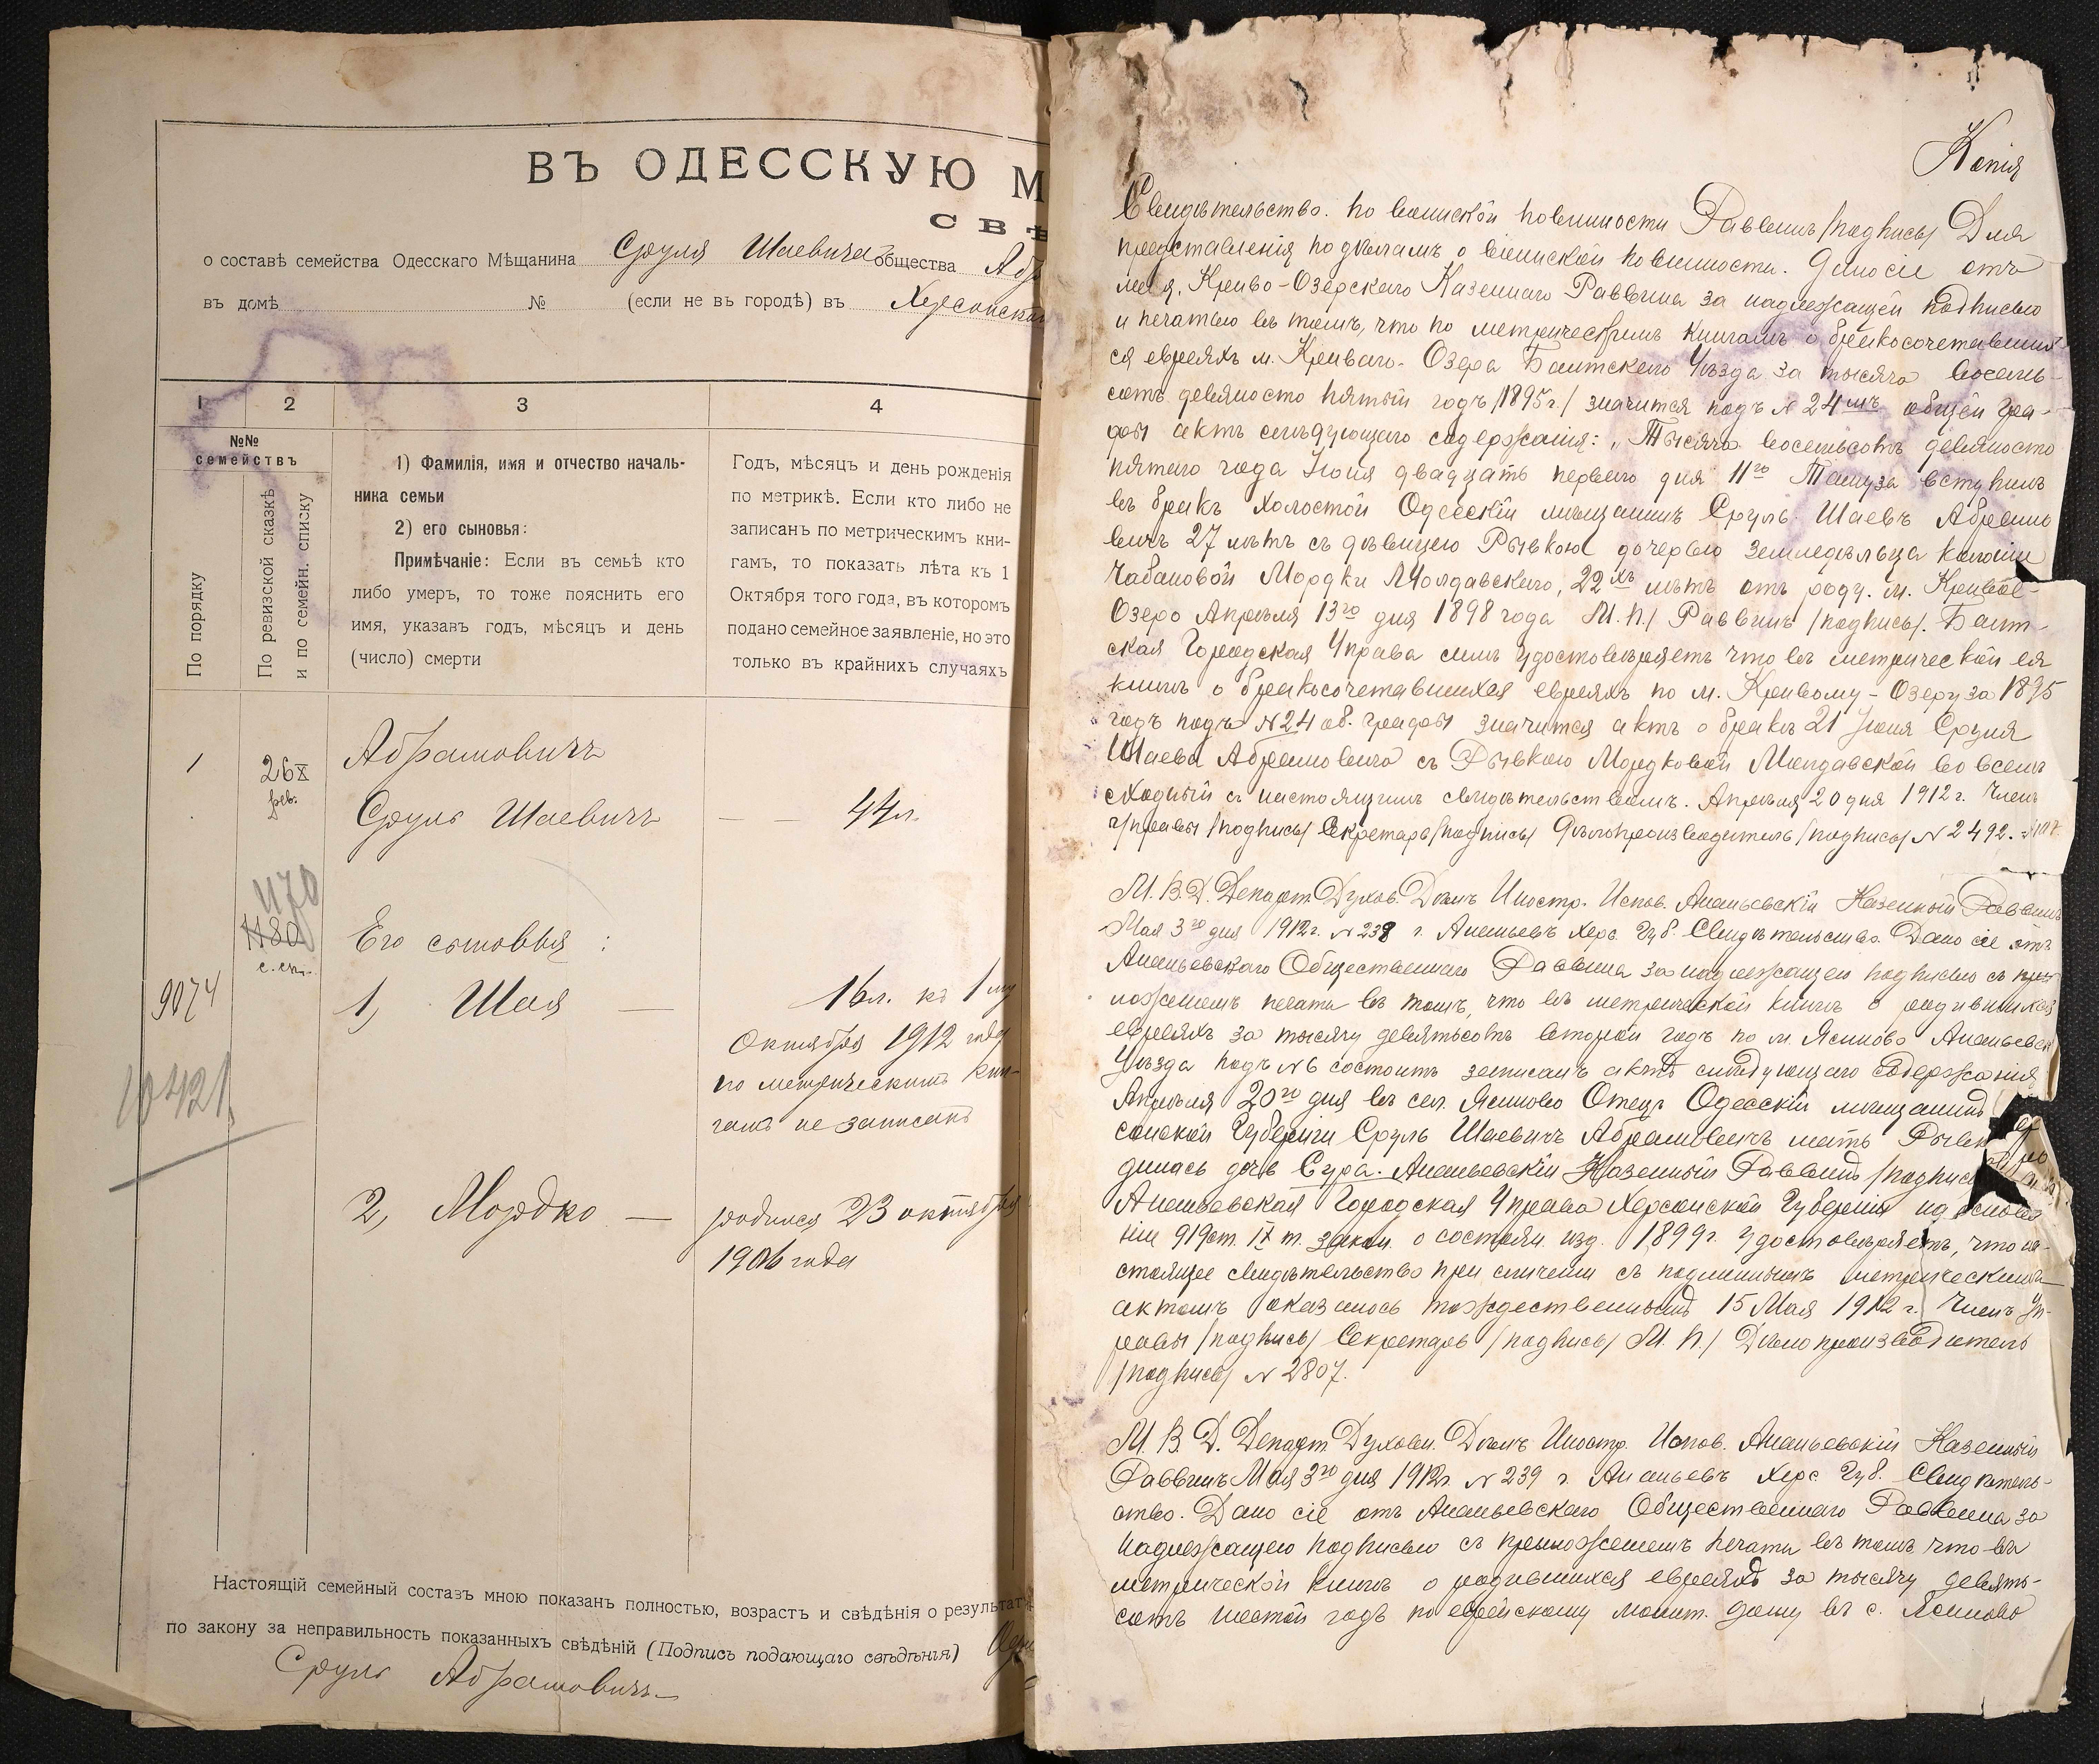 ВЪ ОДЕССКУЮ М
СВѢ
о составѣ семейства Одесскаго Мѣщанина Сруля Шаевича общества Абр
въ домѣ № (если не въ городѣ) въ Херсонской
1 2 3 4
№№ семействъ
По порядку
По ревизской сказкѣ и по семейн. списку
1) Фамилія, имя и отчество началь-
ника семьи
2) его сыновья:
Примѣчаніе: Если въ семьѣ кто
либо умеръ, то тоже пояснить его
имя, указавъ годъ, мѣсяцъ и день
(число) смерти
Годъ, мѣсяцъ и день рожденія
по метрикѣ. Если кто либо не
записанъ по метрическимъ кни-
гамъ, то показать лѣта къ 1
Октября того года, въ которомъ
подано семейное заявленіе, но это
только въ крайнихъ случаяхъ
1 26 X рев. Абрамовичъ
Сруль Шаевичъ — — 44 л.
1170
1180
с. сп.
Его сыновья:
9074
1, Шая — 16 л. къ 1му
Октября 1912 года
по метрическимъ кни-
гамъ не записанъ
10421
2, Мордко — родился 23 октября
1906 года
Настоящій семейный составъ мною показанъ полностью, возрастъ и свѣдѣнія о результат
по закону за неправильность показанныхъ свѣдѣній (Подпись подающаго свѣдѣнія)
Сруль Абрамовичъ
Копія
Свидѣтельство. по воинской повинности Раввинъ /подпись/ Для
представленія по дѣламъ о воинской повинности. Дано сіе отъ
меня, Криво-Озерскаго Казеннаго Раввина за надлежащей подписью
и печатью въ томъ, что по метрическимъ книгамъ о бракосочетавших-
ся евреяхъ м. Криваго-Озера Балтскаго Уѣзда за тысяча восемь-
сотъ девяносто пятый годъ /1895 г./ значится подъ № 24мъ общей гра-
фы актъ слѣдующаго содержанія: „Тысяча восемьсотъ девяносто
пятаго года Іюня двадцать перваго дня 11го Тамуза вступилъ
въ бракъ холостой Одесскій мѣщанинъ Сруль Шаевъ Абрамо
вичъ 27 лѣтъ съ дѣвицею Рывкою дочерью земледѣльца колоніи
Чабановой Мордки Молдавскаго, 22хъ лѣтъ отъ роду. м. Кривое-
Озеро Апрѣля 13го дня 1898 года М. П./ Раввинъ /подпись/. Балт-
ская Городская Управа симъ удостовѣряетъ что въ метрической ея
книгѣ о бракосочетавшихся евреяхъ по м. Кривому-Озеру за 1895
годъ подъ № 24 об. графы значится актъ о бракѣ 21 Іюня Сруля
Шаева Абрамовича съ Рывкою Мордковой Молдавской во всемъ
сходный съ настоящимъ свидѣтельствомъ. Апрѣля 20 дня 1912 г. Членъ
Управы /подпись/ Секретарь /подпись/ Дѣлопроизводитель /подпись/ № 2492.
М. В. Д. Департ. Духов. Дѣлъ Иностр. Испов. Ананьевскій Казенный Раввинъ
Мая 3го дня 1912 г. № 238 г. Ананьевъ Херс. Губ. Свидѣтельство. Дано сіе отъ
Ананьевскаго Общественнаго Раввина за надлежащею подписью съ при
ложеніемъ печати въ томъ, что въ метрической книгѣ о родившихся
евреяхъ за тысячу девятьсотъ второй годъ по м. Ясиново Ананьевск
Уѣзда подъ № 6 состоитъ записанъ актъ слѣдующаго содержанія
Апрѣля 20го дня въ сел. Ясиново Отецъ Одесскій мѣщанинъ
сонской Губерніи Сруль Шаевичъ Абрамовичъ мать Рывк
дилась дочь Сура. Ананьевскій Казенный Раввинъ /подпись
Ананьевская Городская Управа Херсонской Губерніи на основа
ніи 919 ст. IX т. закон. о состоян. изд. 1899 г. удостовѣряетъ, что на-
стоящее свидѣтельство при сличеніи съ подлиннымъ метрическимъ
актомъ оказалось тождественнымъ 15 Мая 1912 г. Членъ Уп-
равы /подпись/ Секретарь /подпись/ М. П./ Дѣлопроизводитель
/подпись/ № 2807.
М. В. Д. Департ. Духовн. Дѣлъ Иностр. Испов. Ананьевскій Казенный
Раввинъ Мая 3го дня 1912 г. № 239 г. Ананьевъ Херс. Губ. Свидѣтель-
ство. Дано сіе отъ Ананьевскаго Общественнаго Раввина за
надлежащею подписью съ приложеніемъ печати въ томъ что въ
метрической книгѣ о родившихся евреяхъ за тысячу девять-
сотъ шестой годъ по еврейскому молит. дому въ с. Ясиново